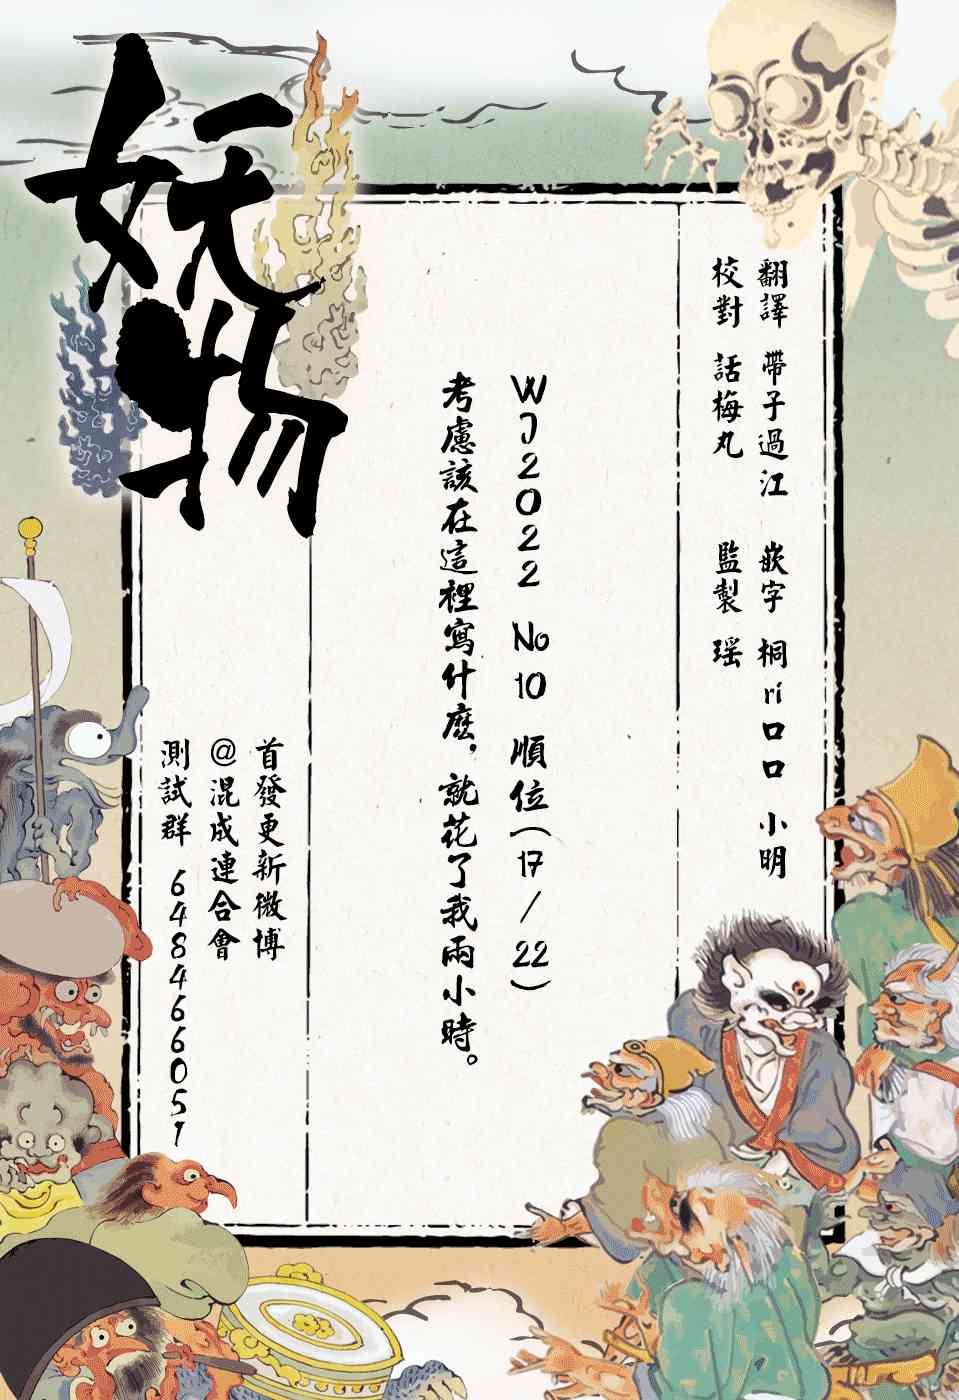 妖物
翻譯 帶子過江 嵌字 桐rí口口 小明
校對 話梅丸 監製 瑶
WJ2022 No10 順位(17/22)
考慮該在這裡寫什麼，就花了我兩小時。
首發更新微博
@混成連合會
測試群 648466051